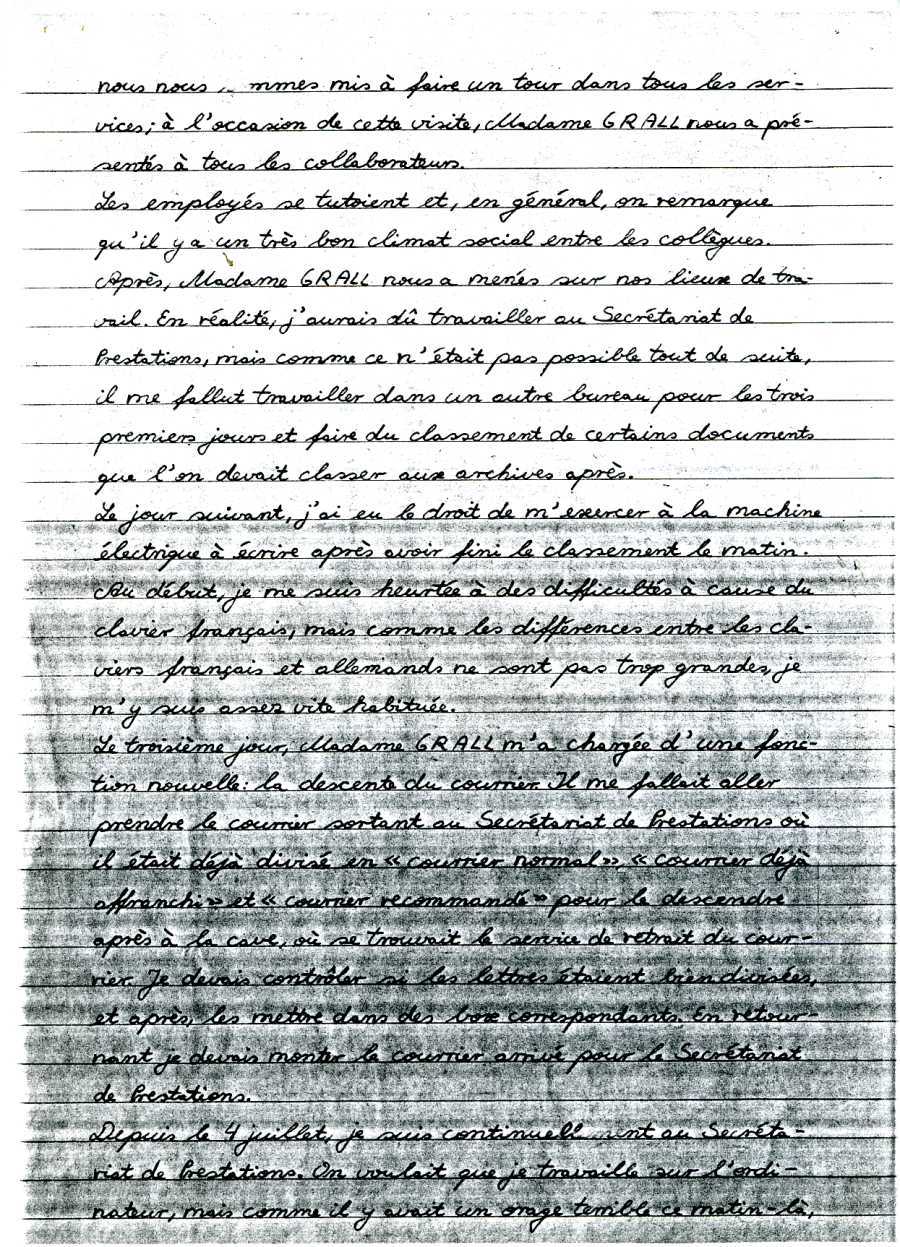 nous nous mmes mis à faire un tour dans tous les ser-
vices; à l'occasion de cette visite, Madame GRALL nous a pré-
sentés à tous les collaborateurs.
Les employés se tutoient et, en général, on remarque
qu'il y a un très bon climat social entre les collègues.
Après, Madame GRALL nous a menés sur nos lieux de tra-
vail. En réalité, j'aurais dû travailler au Secrétariat de
Prestations, mais comme ce n'était pas possible tout de suite,
il me fallut travailler dans un autre bureau pour les trois
premiers jours et faire du classement de certains documents
que l'on devait classer aux archives après.
Le jour suivant, j'ai eu le droit de m'exercer à la machine
électrique à écrire après avoir fini le classement le matin.
Au début, je me suis heurtée à des difficultés à cause du
clavier français, mais comme les différences entre les cla-
viers français et allemands ne sont pas trop grandes, je
m'y suis assez vite habituée.
Le troisième jour, Madame GRALL m'a chargée d'une fonc-
tion nouvelle: la descente du courrier. Il me fallait aller
prendre le courrier sortant au Secrétariat de Prestations où
il était déjà divisé en « courrier normal », « courrier déjà
affranchi » et « courrier recommandé » pour le descendre
après à la cave, où se trouvait le service de retrait du cour-
rier. Je devais contrôler si les lettres étaient bien divisées,
et après, les mettre dans des box correspondants. En retour-
nant je devais monter le courrier arrivé pour le Secrétariat
de Prestations.
Depuis le 4 juillet, je suis continuell ment au Secréta-
riat de Prestations. On voulait que je travaille sur l'ordi-
nateur, mais comme il y avait un orage terrible ce matin-là,